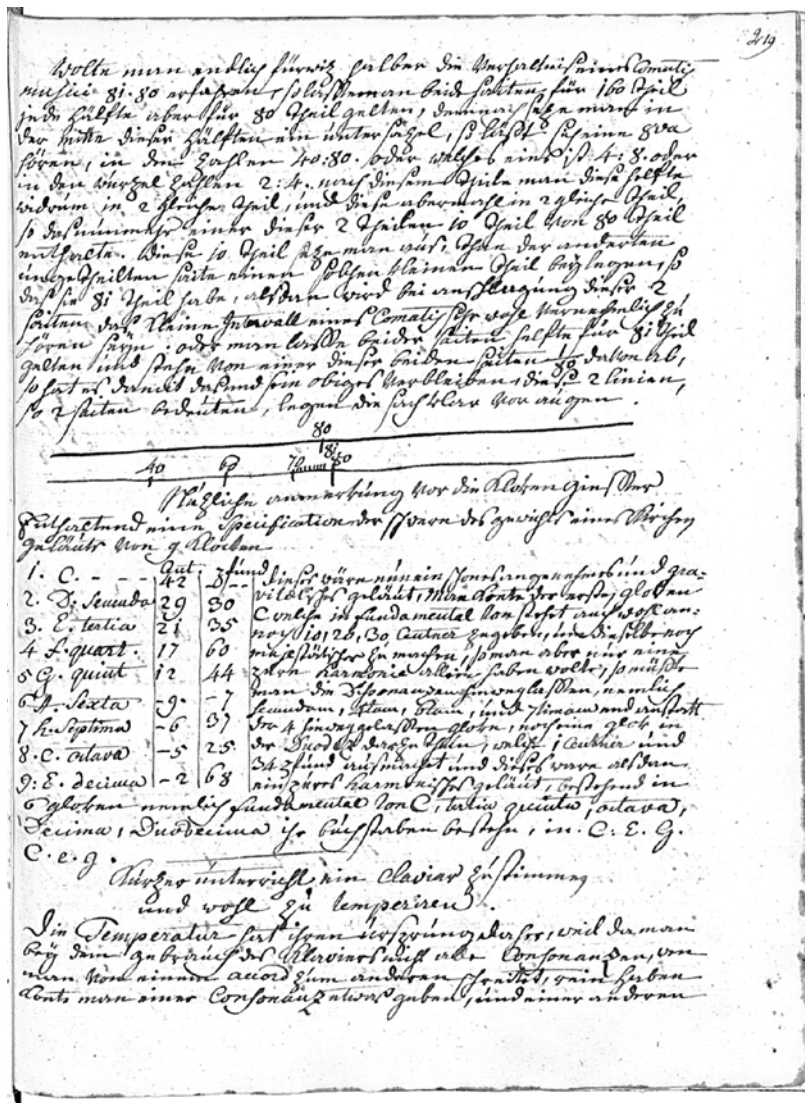 219
Wolte man endlich fürwitz halber die Verhaltnis eines Comatis
musici 81.80 erfahren, so lasse man beide saiten für 160 Theil
jede Hälfte aber für 80 Theil gelten, demnach setze man in
der mitte dieser Hälften ein untersäzel, so läst sich eine 8va
hören, in den Zahlen 40:80. oder welches eins ist 4:8. oder
in den wurzel Zahlen 2:4. nach diesem Theile man diese helfte
widrum in 2 gleiche Theil, und diese abermahl in 2 gleiche Theil,
so das nunmehr einer dieser 2 Theilen 10 Theil von 80 Theil
enthalte. Diese 10 Theil setze man aus, Thue der anderten
ungetheilten saite einen solchen kleinen Theil beÿlegen, so
das sie 81 Theil habe, alsdan wird bei anschlagung dieser 2
saiten das kleine Intervall eines Comatis sehr wohl vernehmlich zu
hören seÿn, oder man lasse beider saiten helfte für 81 Theil
gelten und stehe von einer dieser beiden saiten 1/80 davon ab,
so hat es damit das und sein obiges Verbleiben, diese 2 linien,
so 2 saiten bedeuten, legen die sach klar vor augen.
80
81
40 60 70 80
Nüzliche anmerkung vor die Kloken giesser
Enthaltend eine Specification der schwere des gewichts eines Kirchen
geläuts von 9 Klocken
Cent. pfund
1. C. - - - 42 8 -- dieses wäre nun ein schönes angenehmes und gra-
2. D. Secunda 29 30 vitëtisches geläut, man könte der erste gloken
3. E. tertia 21 35 C welche im fundamental Ton stehet auch wohl an-
4 F. quart. 17 60 noch 10, 20, 30 Centner zugeben, um dieselbe noch
5 G. quint 12 44 majestätischer zu machen, so man aber nur eine
6 A. Sexta -9- -7 pure Harmonie allein haben wolte, so müste
7 h. Septima -6 37 man die Dissonanzen hinweglassen, nemlich
8. C. octava -5 25. Secundam, 4tam, 6tam, und 7timam und anstatt
9: E. Decima -2 68 der 4 hinweggelassen gloken, noch eine glok in
der Duodez darzu thun, welche 1 Centner und
34 pfund ausmachet und dieses ware alsdan
ein pures harmonisches geläut, bestehend in
6 gloken nemlich fundamental Ton C, tertia quinta, octava,
Decima, Duodecima ihr buchstaben bestehn, in. C. E. G.
C. e. g.
Kurzer unterricht ein Clavier zustimmen
und wohl zu temperiren.
Die Temperatur hat ihren ursprung daher, weil da man
beÿ dem gebrauch des Klaviers nicht alle Consonanzen, wen
man von einem accord zum anderen schreitet, rein haben
konte man einer Consonanz etwas geben, und einer anderen